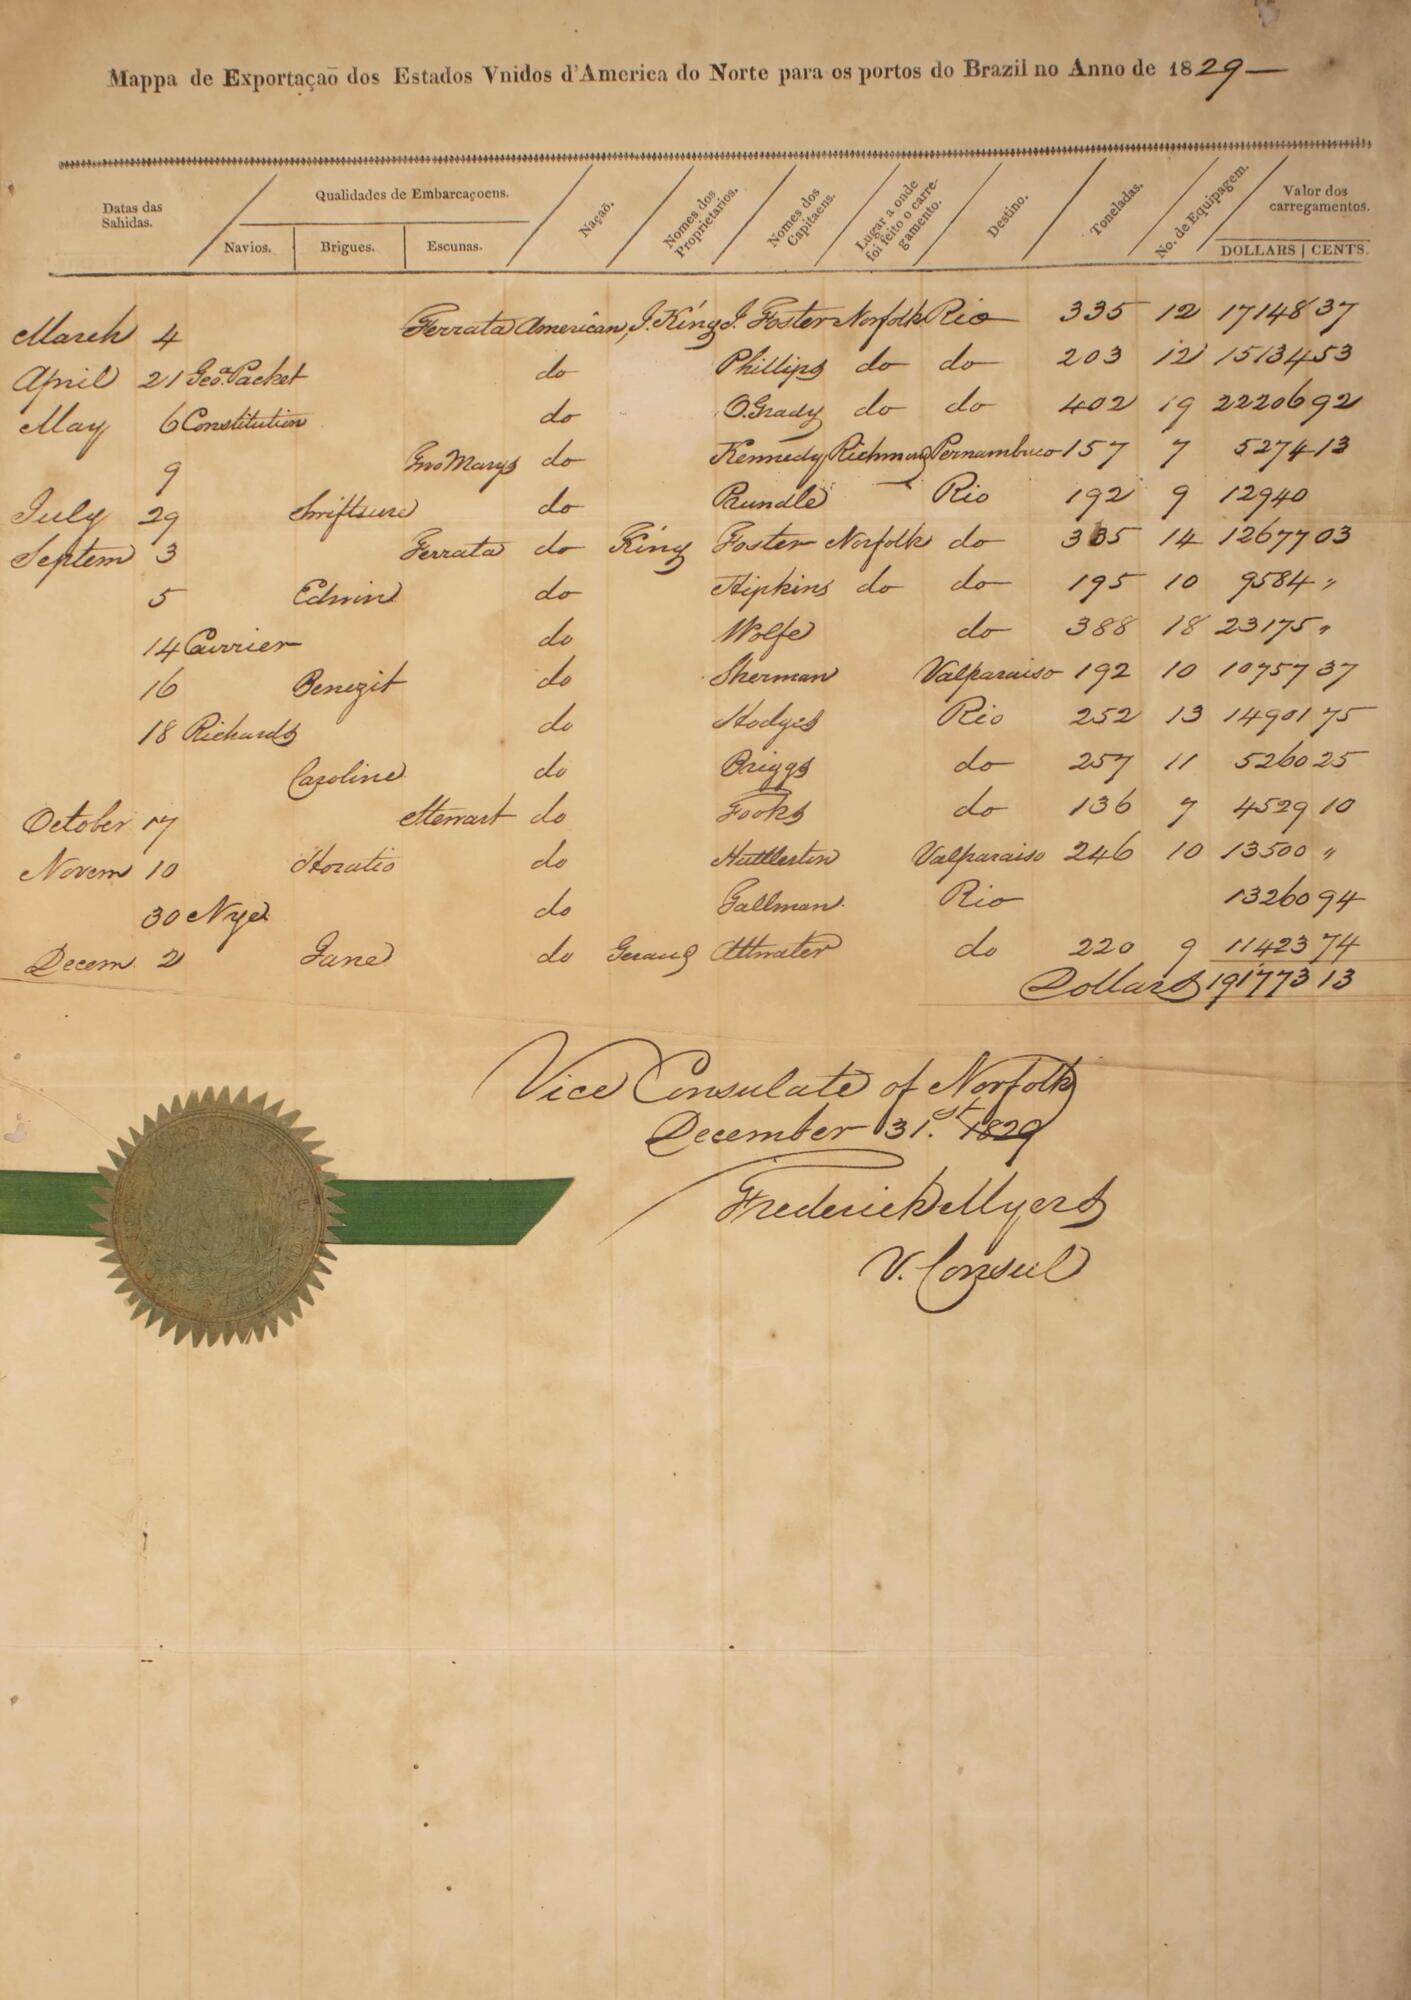 Mappa de Exportaçaõ dos Estados Vnidos d'America do Norte para os portos do Brazil no Anno de 1829
Datas das Sahidas.
Qualidades de Embarcaçoens.
Navios. Brigues. Escunas.
Naçaõ.
Nomes dos Proprietarios.
Nomes dos Capitaens.
Lugar a onde foi feito o carregamento.
Destino.
Toneladas.
No. de Equipagem.
Valor dos carregamentos.
DOLLARS | CENTS.
March 4 Ferrata American J. King J. Foster Norfolk Rio 335 12 17148 37
April 21 Geo.a Packet do Phillips do do 203 12 15134 53
May 6 Constitution do O.Grady do do 402 19 22206 92
9 Marys do Kennedy Richmond Pernambuco 157 7 5274 13
July 29 Swiftsure do Rundle Rio 192 9 12940
Septem 3 Ferrata do King Foster Norfolk do 335 14 12677 03
5 Edwin do Hipkins do do 195 10 9584 "
14 Currier do Wolfe do 388 18 23175 "
16 Benezit do Sherman Valparaiso 192 10 10757 37
18 Richards do Hodges Rio 252 13 14901 75
Caroline do Briggs do 257 11 5260 25
October 17 Stewart do Fooks do 136 7 4529 10
Novem 10 Horatio do Huttleston Valparaiso 246 10 13500 "
30 Nye do Gallman Rio 13260 94
Decem 2 Jane do Attwater do 220 9 11423 74
Dollars 191773 13
Vice Consulate of Norfolk
December 31.st 1829
Frederick Myers
V. Consul